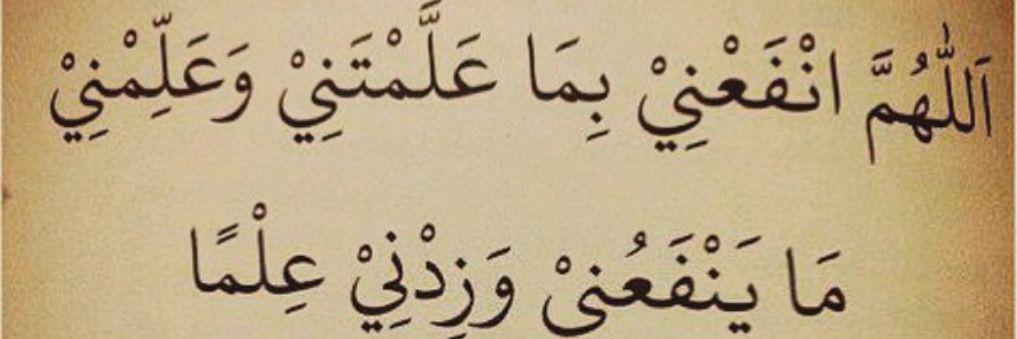 اَللّٰهُمَّ انْفَعْنِيْ بِمَا عَلَّمْتَنِيْ وَعَلِّمْنِيْ
مَا يَنْفَعُنِىْ وَزِدْنِيْ عِلْمًا